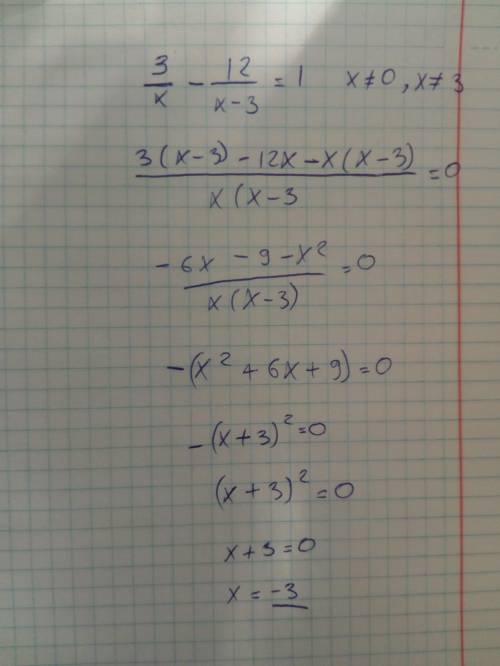 3/x - 12/(x-3) = 1   x≠0, x≠3
(3(x-3) - 12x - x(x-3))/(x(x-3) = 0
(-6x - 9 - x²)/(x(x-3)) = 0
-(x² + 6x + 9) = 0
-(x+3)² = 0
(x+3)² = 0
x+3 = 0
x = -3